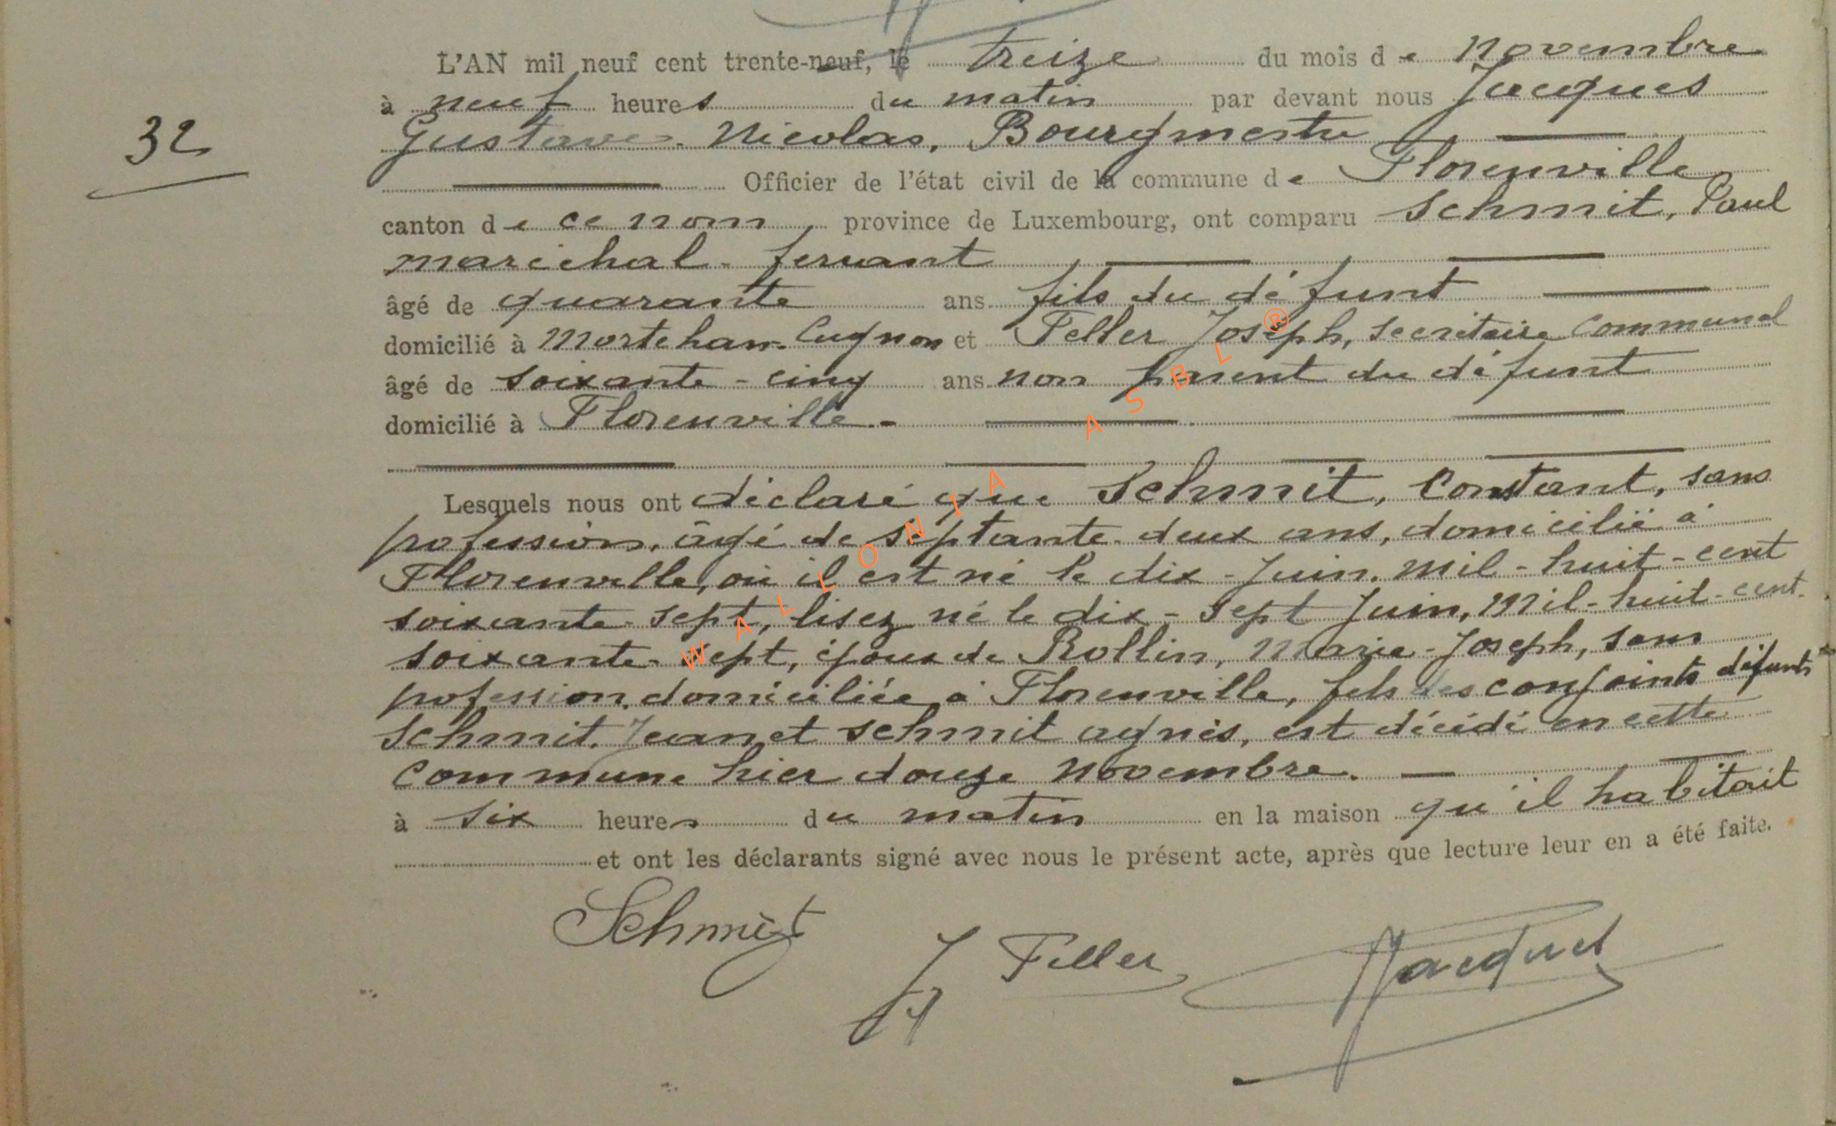 L'AN mil neuf cent trente-neuf, le treize du mois de novembre
à neuf heures du matin par devant nous Jacques
32
Gustave-Nicolas, Bourgmestre
Officier de l'état civil de la commune de Florenville
canton de ce nom, province de Luxembourg, ont comparu Schmit, Paul
maréchal-ferrant
âgé de quarante ans fils du défunt
domicilié à Mortehan-Cugnon et Feller Joseph, secrétaire communal
âgé de soixante-cinq ans non parent du défunt
domicilié à Florenville.-
Lesquels nous ont déclaré que Schmit, Constant, sans
profession, âgé de septante-deux ans, domicilié à
Florenville, où il est né le dix-Juin, mil-huit-cent
soixante-sept, lisez né le dix-sept Juin, mil-huit-cent-
soixante-sept, époux de Rollin, Marie-Joseph, sans
profession, domiciliée à Florenville, fils des conjoints défunts
Schmit, Jean et Schmit agnès, est décédé en cette
commune hier douze novembre.
à six heures du matin en la maison qu'il habitait
et ont les déclarants signé avec nous le présent acte, après que lecture leur en a été faite.
Schmit
J Feller
Jacques
WALLONIA ASBL ®